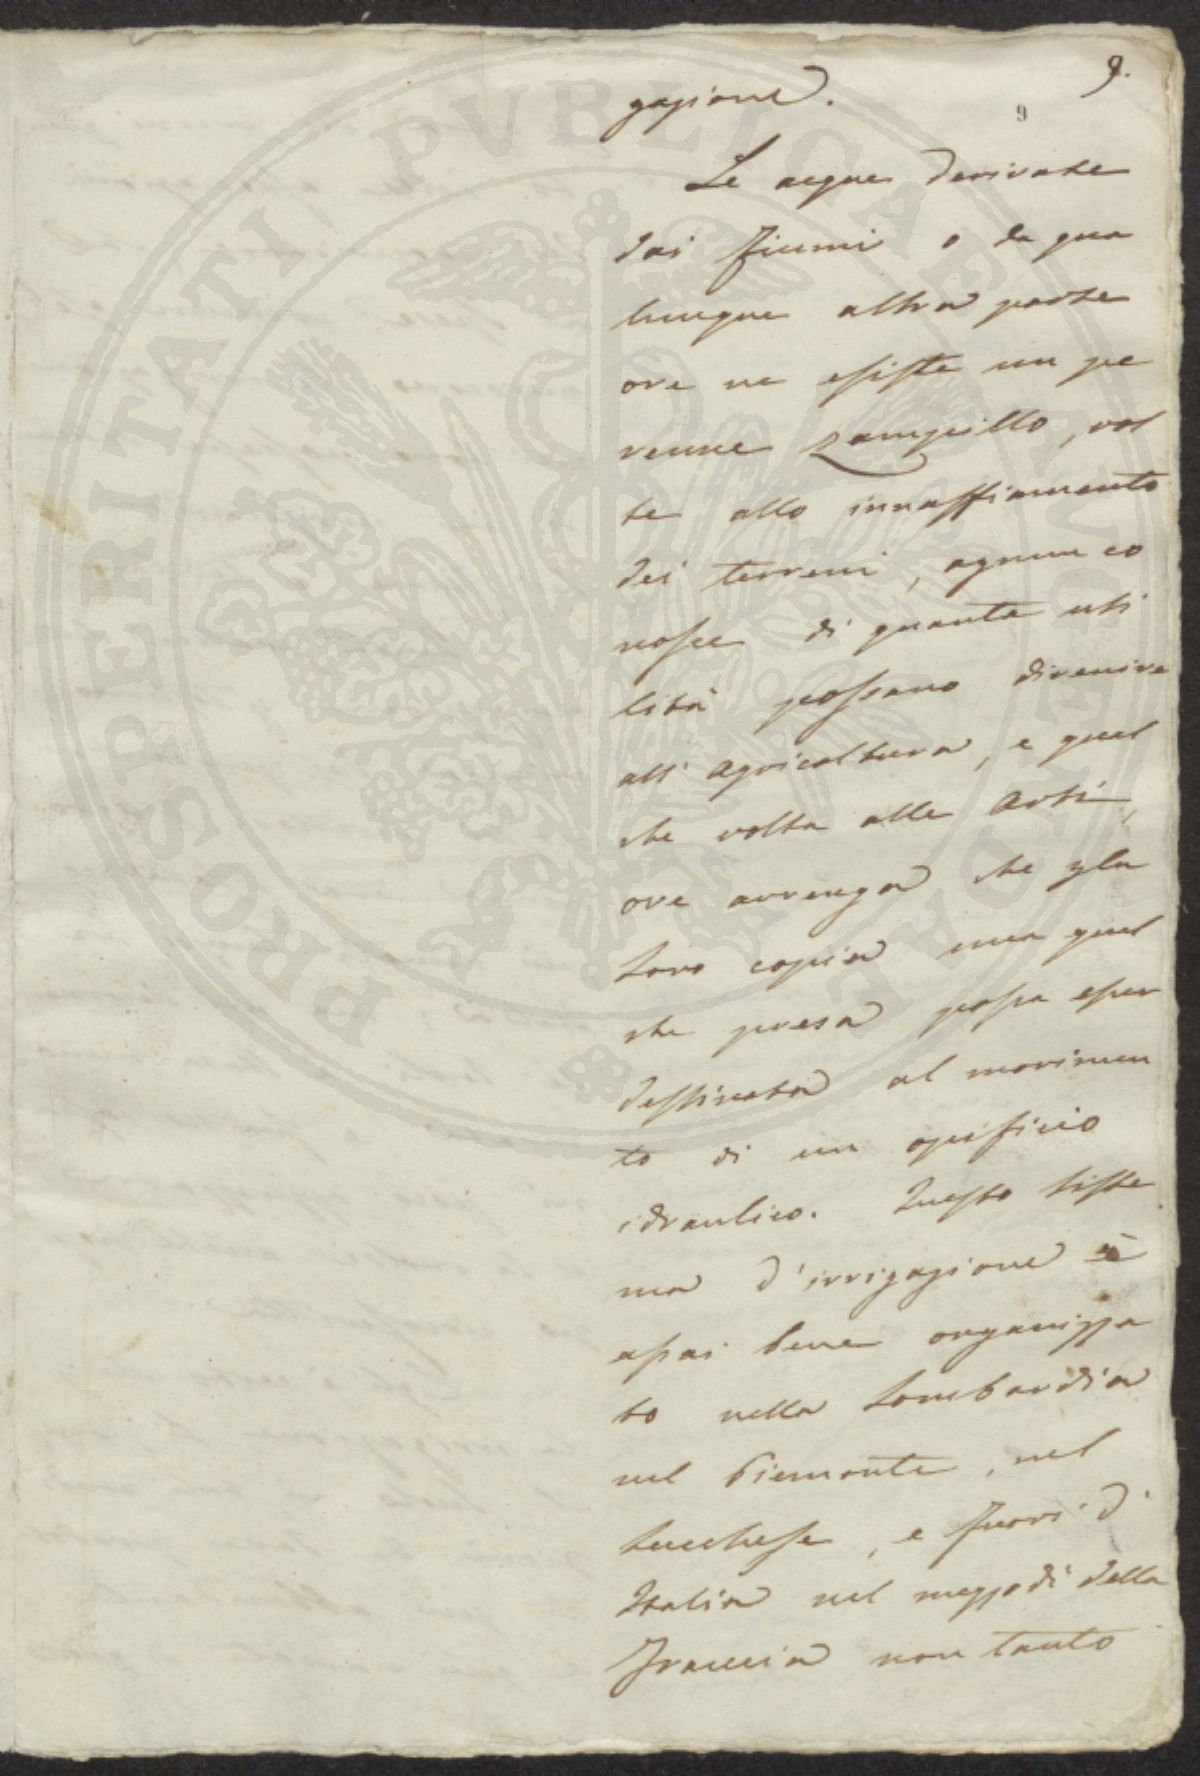 9.
9
gazione.
Le acque derivate
dai fiumi o da qua
lunque altra parte
ove ne esiste un pe
renne zampillo, vol
te allo innaffiamento
dei terreni, ognun co
nosce di quanta uti
lità possano divenire
all'Agricoltura, e qual
che volta alle Arti,
ove avvenga che p la
loro copia una qual
che presa possa esser
destinata al movimen
to di un opificio
idraulico. Questo siste
ma d'irrigazione è
assai bene organizza
to nella Lombardia
nel Piemonte, nel
Lucchese, e fuori d'
Italia nel mezzodi della
Francia non tanto
PROSPERITATI PUBLICAE AUGENDAE